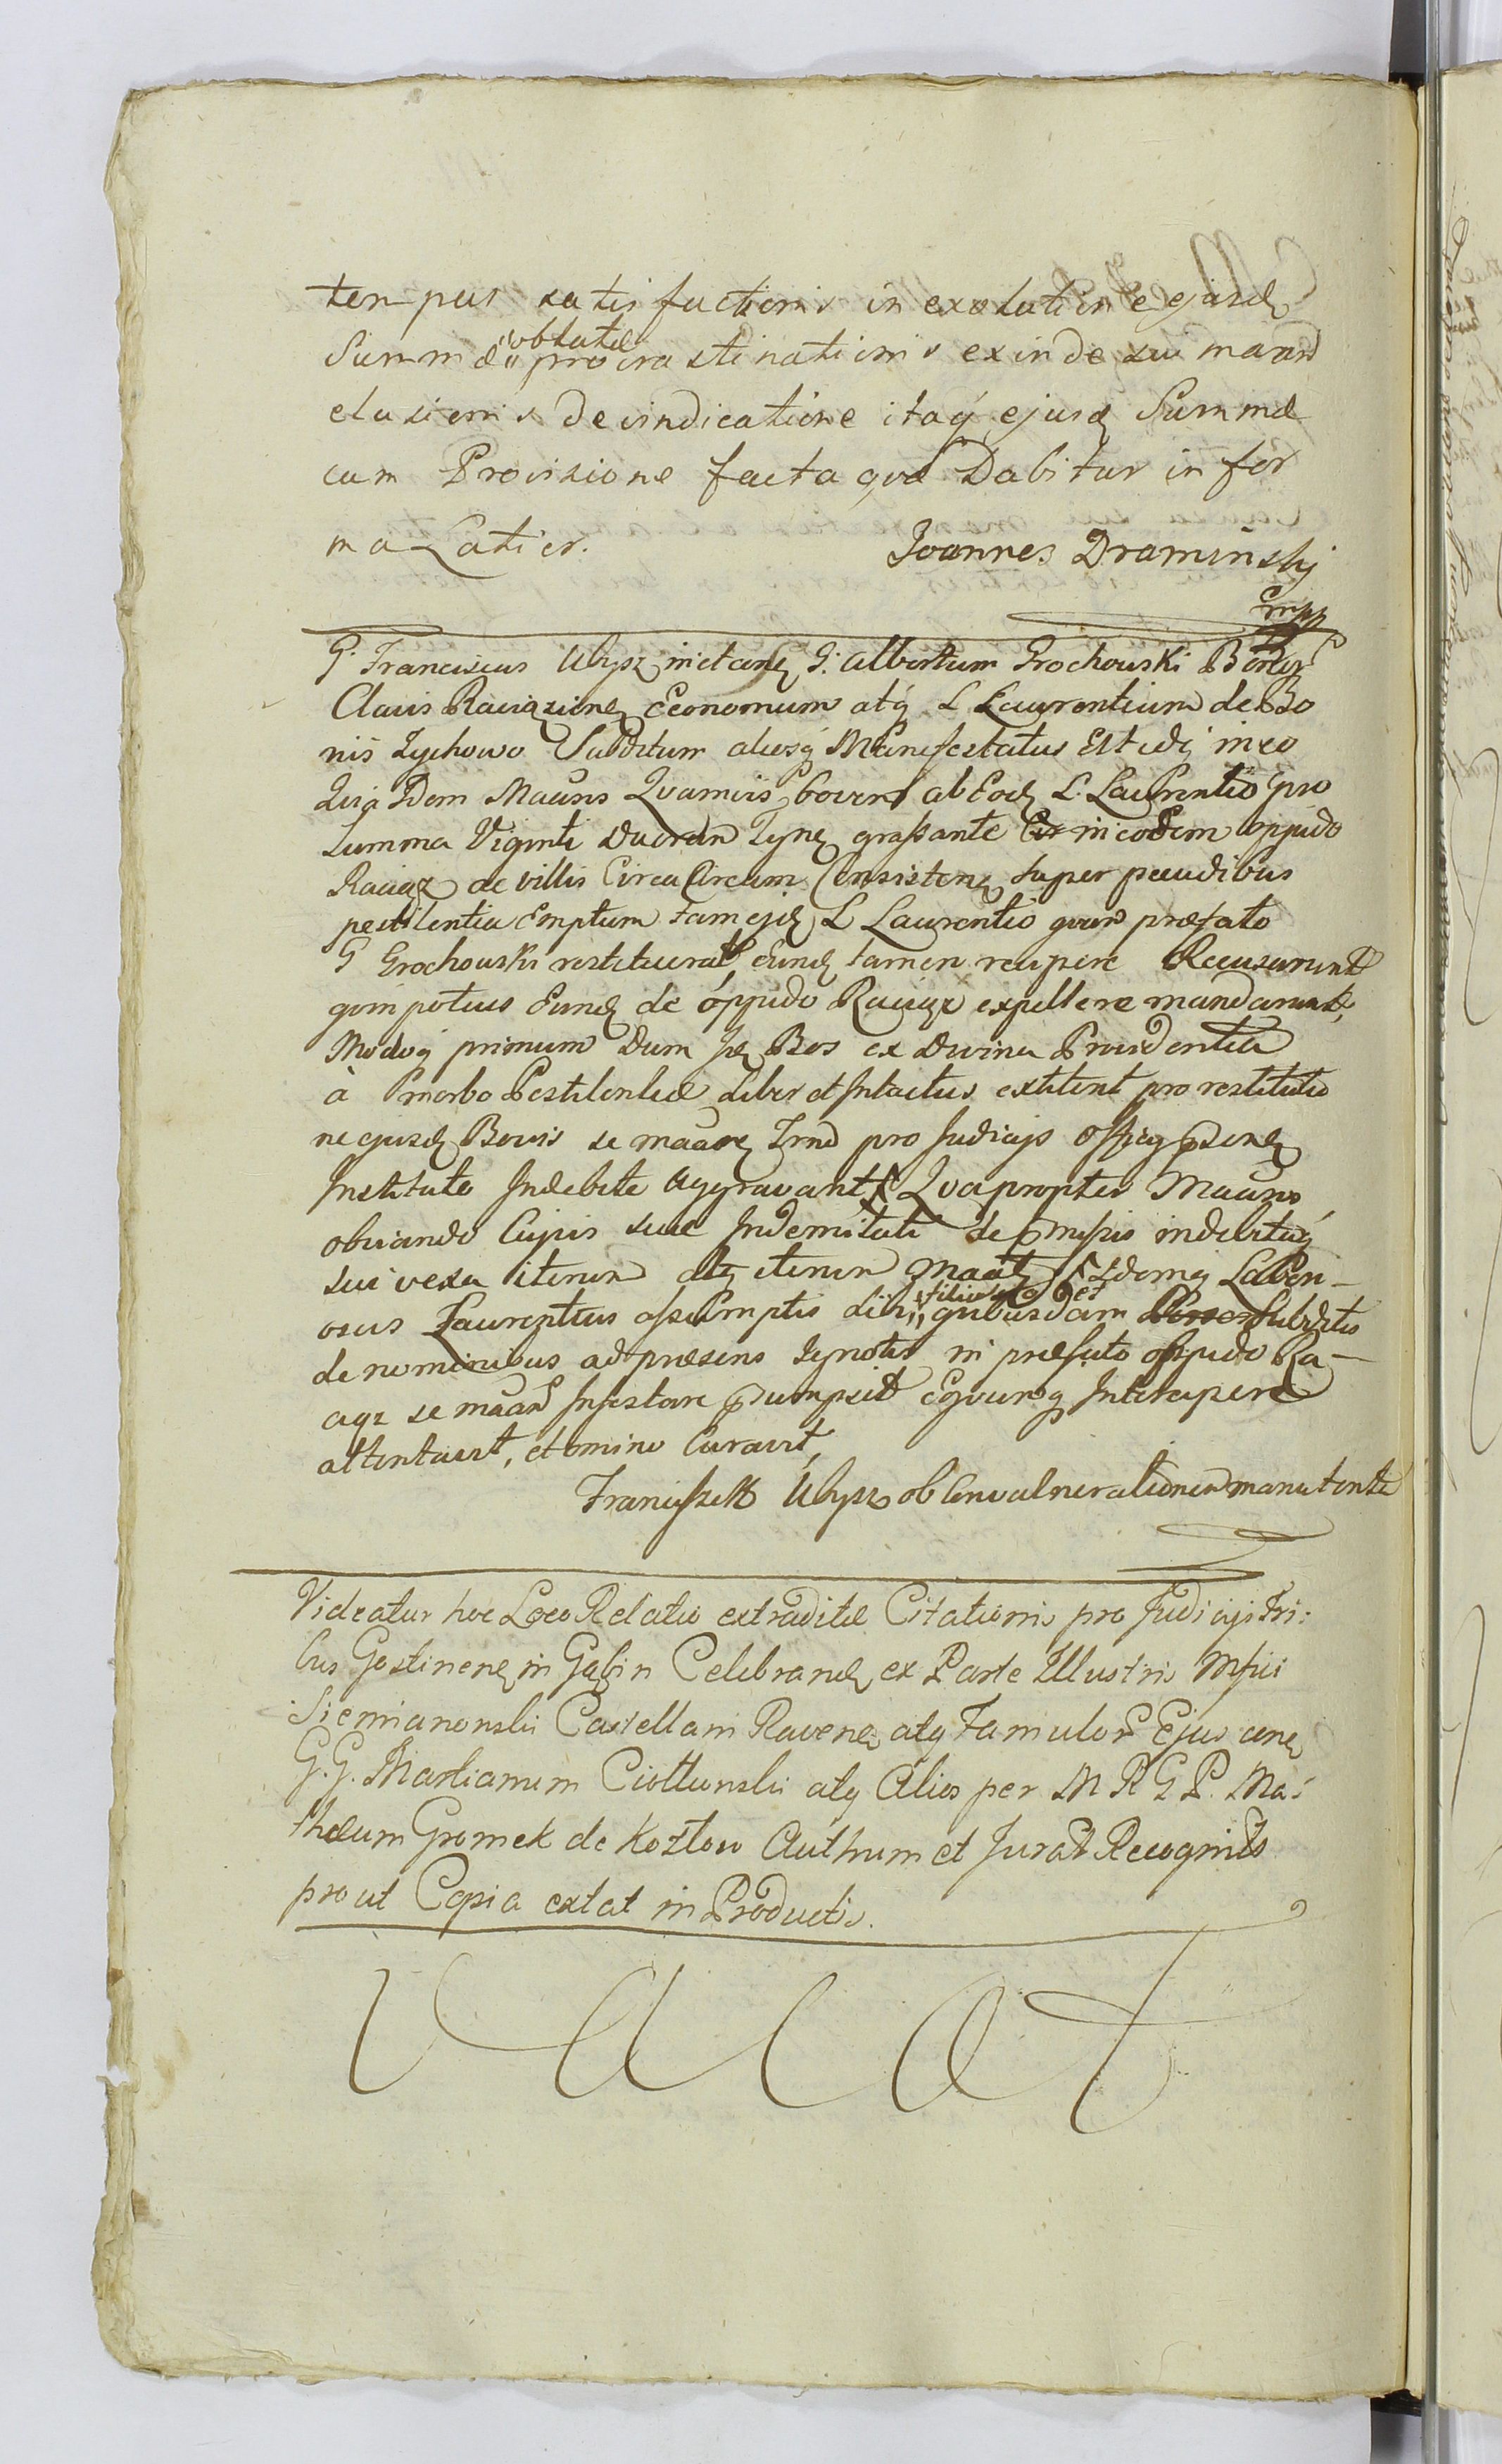 tempus satisfactionis in exolutione ejusd
Summæ "oblatæ" procrastinationis exinde sui maan
elusionis de vindicatione itaq ejusd Summæ
cum Provisione facta quæ Dabitur in for
ma Latior.
Joannes Dramiński
mpp
G. Franciscus Ulysz in et con G. Albertum Grochowski
Clavis Raciązinen Œconomum atq L Laurentium de Bo
nis Zychowo Subditum aliosq Manifestatus Est id in eo
Quia Idem Maans Quamvis bovem ab Eod L. Laurentio pro
Summa Viginti Duorum Tynf grassante in eodem oppido
Raciąz de villis Circa Circum Consisten super pecudibus
pestilentia Emptum tam ejd L Laurentio quam præfato
G Grochowski restituerat Eund tamen recipere Recusarunt
qvin potius Eund de oppido Raciąz expellere mandarunt,
Modoq primum Dum is Bos ex Divina Providentia
à morbo Pestilentiæ Liber et Intactus extiterit pro restitutio
ne ejusd Bovis se maan Trnd pro Judicijs Officij
Instituto Indebite Aggravant, Qvapropter Maans
obviando Cujvis suæ Indemnitati de præmissis indebitaq
sui vexa iterum atq iterum Maatq Idemq Labori-
osus Laurentius assumptis sibi "filio suo et" qvibusdam Subditis
de nominibus ad præsens Ignotis in præfato oppido Ra-
ciąz se maan Infestare præsumpsit Eqvumq Intercipere
attentavit, et omnino Curavit,
Franciszek Ulysz ob Convulnerationem manu tentæ
Videatur hoc Loco Relatio extraditæ Citationis pro Judicijs Tri:
bus Gostinen in Gąbin Celebrand ex Parte Illustris Mfici
Siemianowski Castellani Raven atq Famulor Ejus con
G. G. Martianum Ciołkowski atq Alios per M R G P. Ma:
thæum Gromek de Kozłow Authum et Jurat Recognits
prout Copia extat in Productis.
VACAT